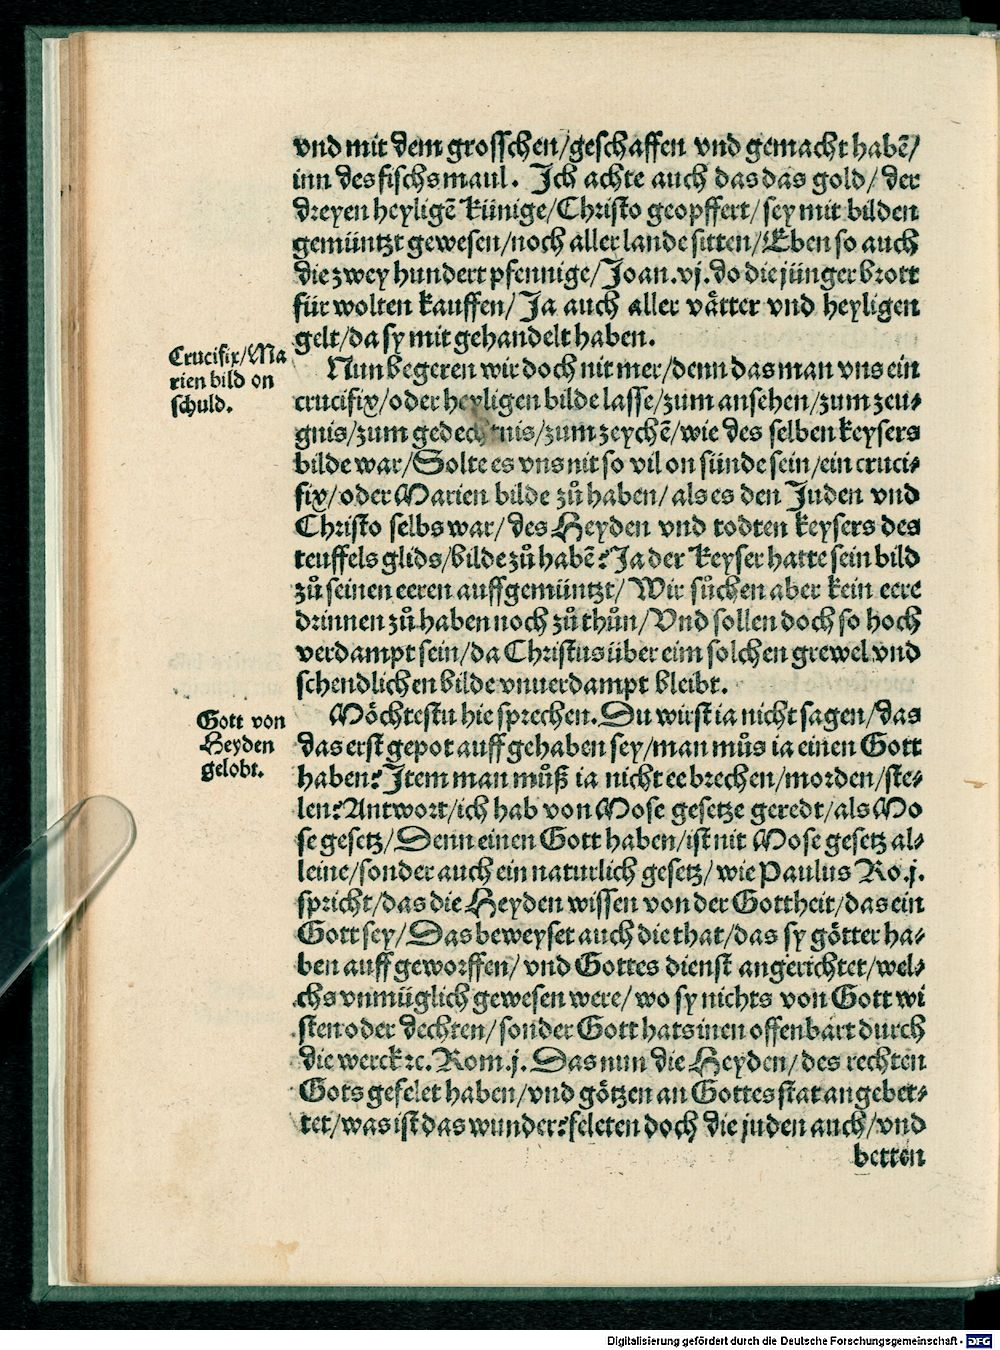 vnd mit dem grosschen/geschaffen vnd gemacht habē/
inn des fischs maul. Ich achte auch das das gold/ der
dreyen heyligē künige/Christo geopffert/sey mit bilden
gemüntzt gewesen/noch aller lande sitten/Eben so auch
die zwey hundert pfennige/Joan.vj.do die jünger brott
für wolten kauffen/ Ja auch aller vätter vnd heyligen
gelt/da sy mit gehandelt haben.
Crucifix/Ma
rien bild on
schuld.
Nun begeren wir doch nit mer/denn das man vns ein
crucifix/oder heyligen bilde lasse/zum ansehen/zum zeu⸗
gnis/zum gedechtnis/zum zeychē/wie des selben keysers
bilde war/Solte es vns nit so vil on sünde sein/ein cruci⸗
fix/oder Marien bilde zů haben/als es den Juden vnd
Christo selbs war/des Heyden vnd todten keysers des
teuffels glids/bilde zů habē? Ja der keyser hatte sein bild
zů seinen eeren auffgemüntzt/ Wir sůchen aber kein eere
drinnen zů haben noch zů thůn/Vnd sollen doch so hoch
verdampt sein/da Christus über eim solchen grewel vnd
schendlichen bilde vnuerdampt bleibt.
Gott von
Heyden
gelobt.
Möchtestu hie sprechen. Du wirst ia nicht sagen/das
das erst gepot auff gehaben sey/man můs ia einen Gott
haben? Item man můß ia nicht eebrechen/morden/ste⸗
len? Antwort/ich hab von Mose gesetze geredt/als Mo
se gesetz/Denn einen Gott haben/ist nit Mose gesetz al⸗
leine/sonder auch ein naturlich gesetz/wie Paulus Ro.j.
spricht/das die Heyden wissen von der Gottheit/das ein
Gott sey/Das beweyset auch die that/das sy götter ha⸗
ben auff geworffen/vnd Gottes dienst angerichtet/wel⸗
chs vnmüglich gewesen were/wo sy nichts von Gott wi
sten oder dechten/sonder Gott hats inen offenbart durch
die werck ꝛc. Rom.j. Das nun die Heyden/des rechten
Gots gefelet haben/vnd götzen an Gottes stat angebet⸗
tet/was ist das wunder? feleten doch die juden auch/vnd
betten
Digitalisierung gefördert durch die Deutsche Forschungsgemeinschaft - DFG